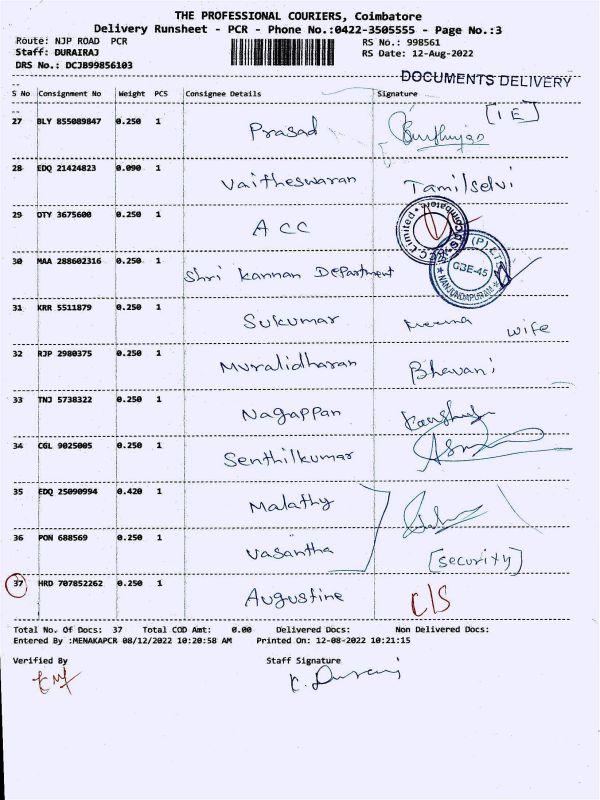 THE PROFESSIONAL COURIERS, Coimbatore
Delivery Runsheet - PCR - Phone No.:0422-3505555 - Page No.:3
Route: NJP ROAD PCR RS No.: 998561
Staff: DURAIRAJ RS Date: 12-Aug-2022
DRS No.: DCJB99856103
DOCUMENTS DELIVERY
S No Consignment No Weight PCS Consignee Details Signature
[IE]
27 BLY 855089847 0.250 1 Prasad
28 EDQ 21424823 0.090 1 Vaitheswaran Tamilselvi
29 OTY 3675600 0.250 1 ACC
30 MAA 288602316 0.250 1 Shri Kannan Department
CBE-45
NANJUNDAPURAM
31 KRR 5511879 0.250 1 Sukumar wife
32 RJP 2980375 0.250 1 Muralidharan Bhavani
33 TNJ 5738322 0.250 1 Nagappan
34 CGL 9025005 0.250 1 Senthilkumar
35 EDQ 25090994 0.420 1 Malathy
36 PON 688569 0.250 1 Vasantha [security]
37 HRD 707852262 0.250 1 Augustine C/S
Total No. Of Docs: 37 Total COD Amt: 0.00 Delivered Docs: Non Delivered Docs:
Entered By :MENAKAPCR 08/12/2022 10:20:58 AM Printed On: 12-08-2022 10:21:15
Verified By Staff Signature